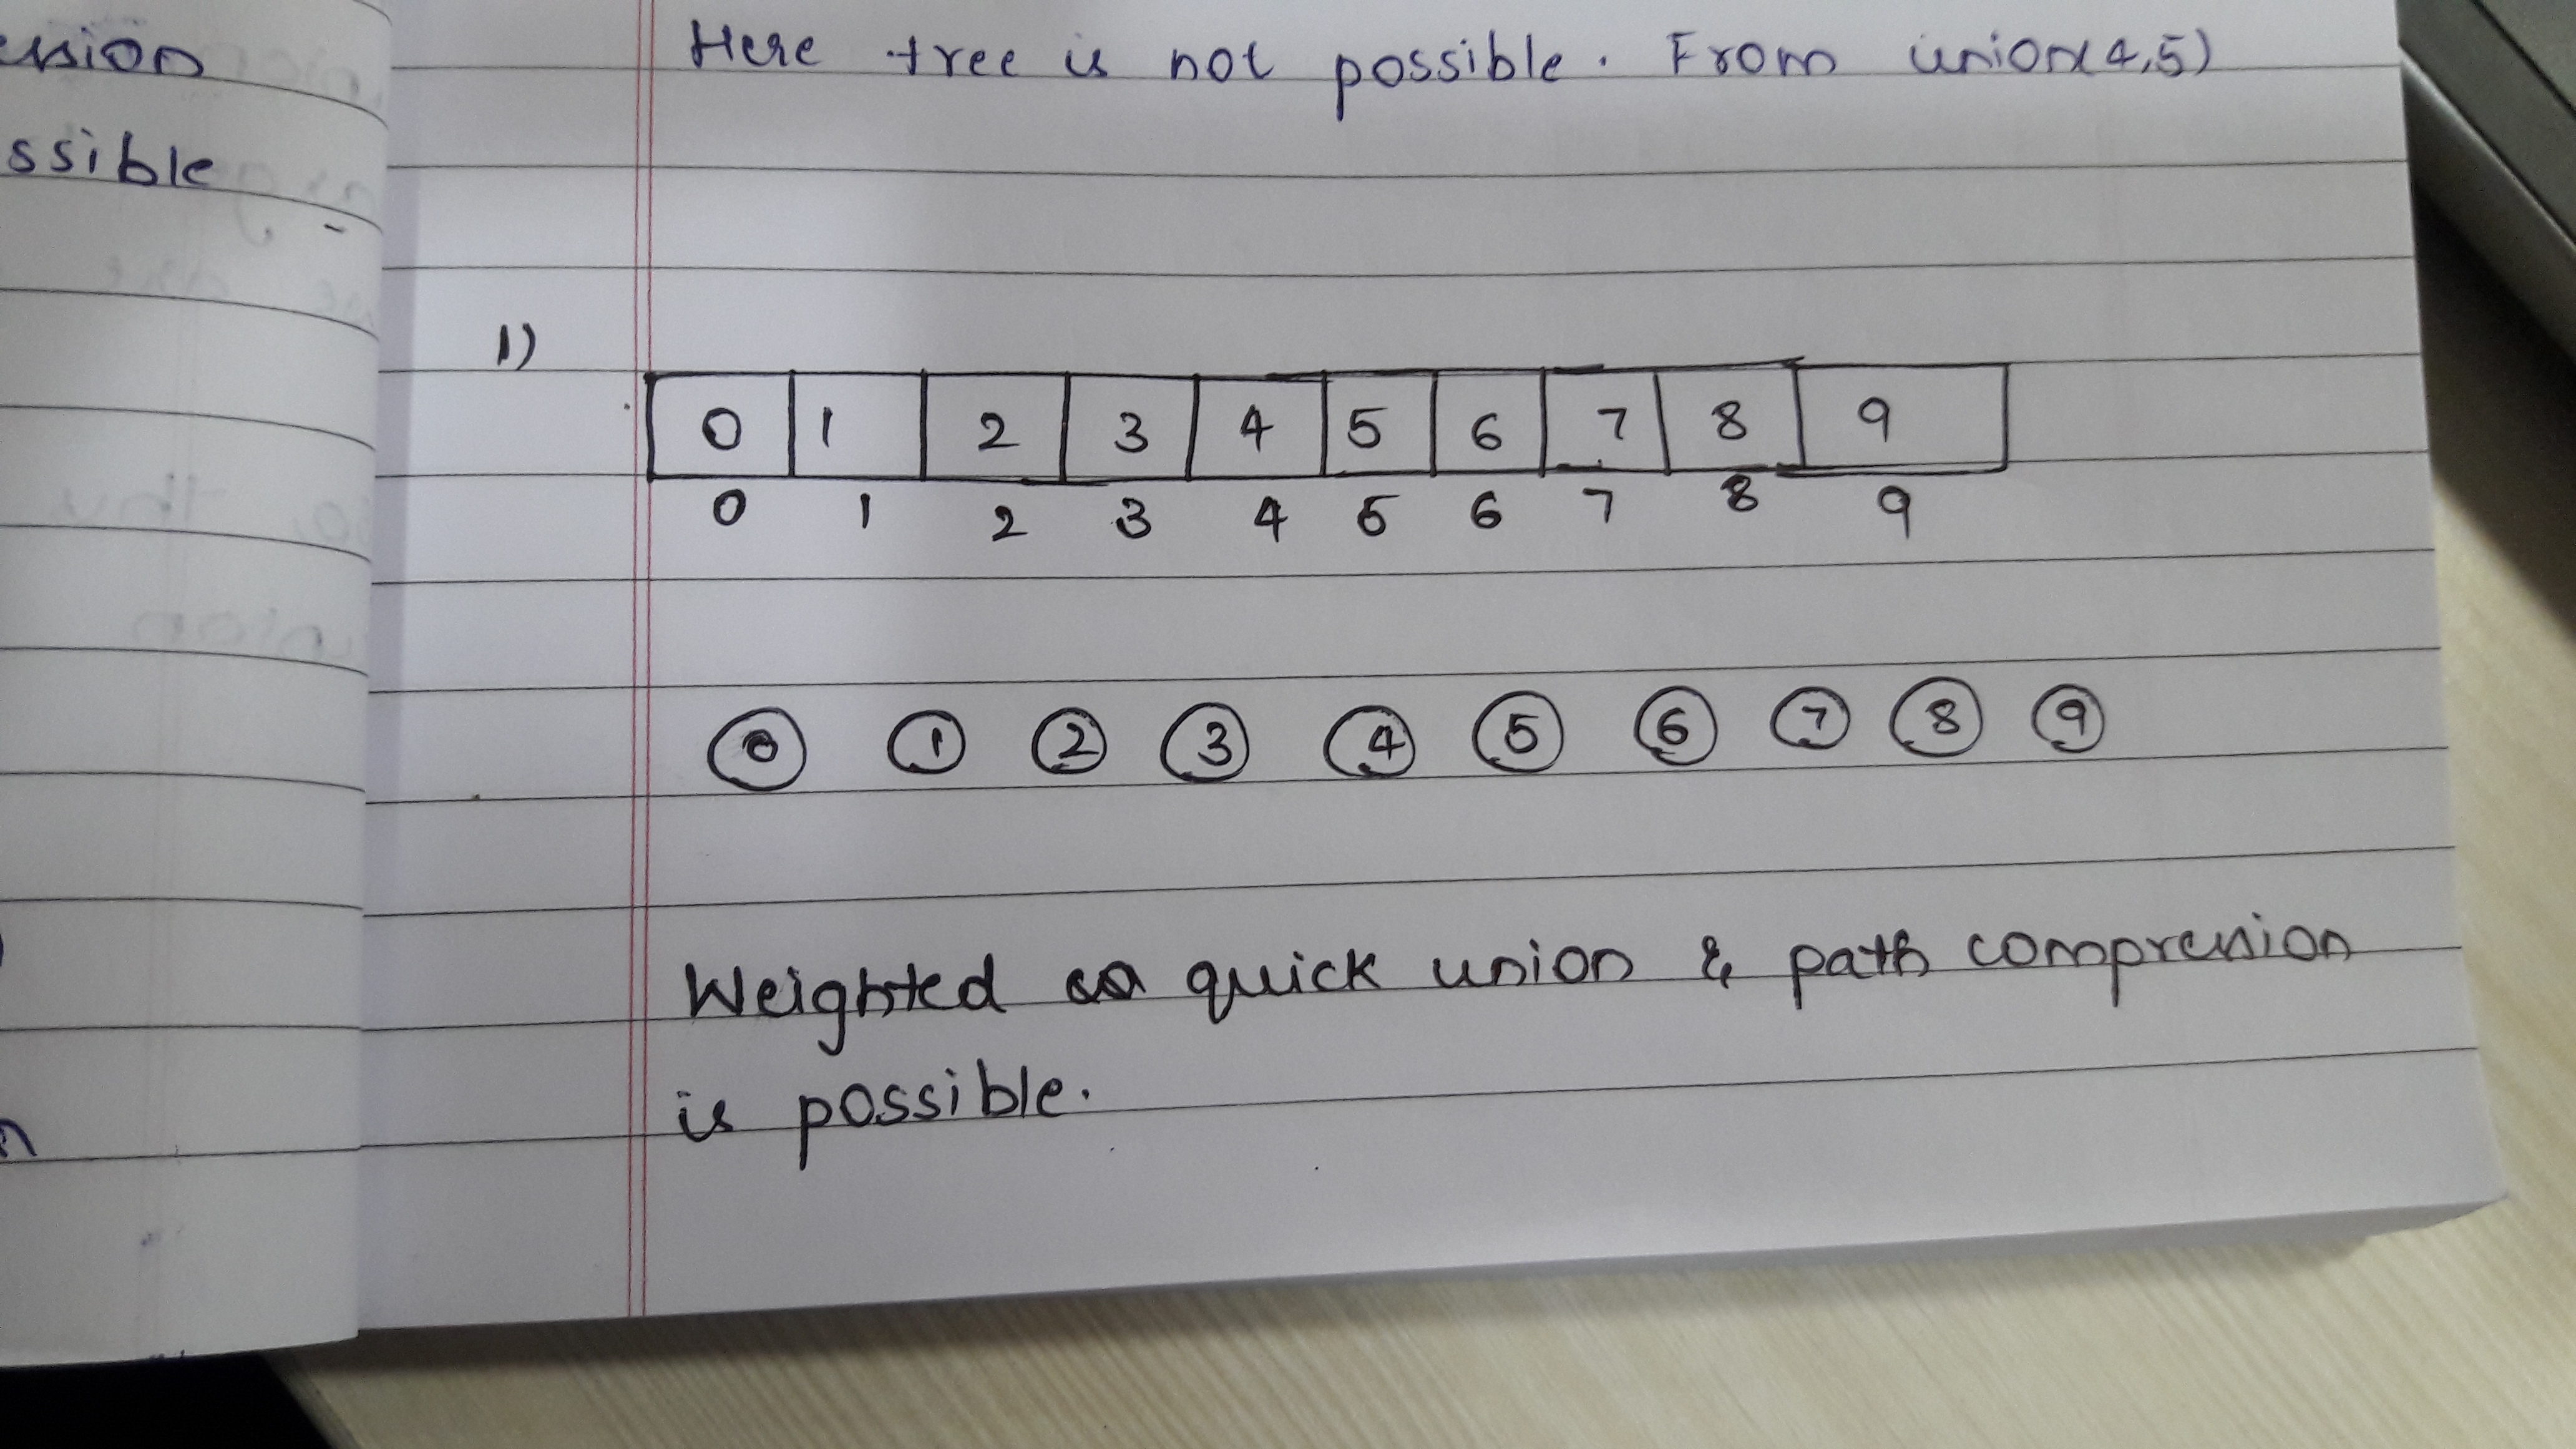 ssible
Here tree is not possible. From union(4,5)
1)
0 1 2 3 4 5 6 7 8 9
0 1 2 3 4 5 6 7 8 9
0 1 2 3 4 5 6 7 8 9
Weighted quick union & path compression
is possible.